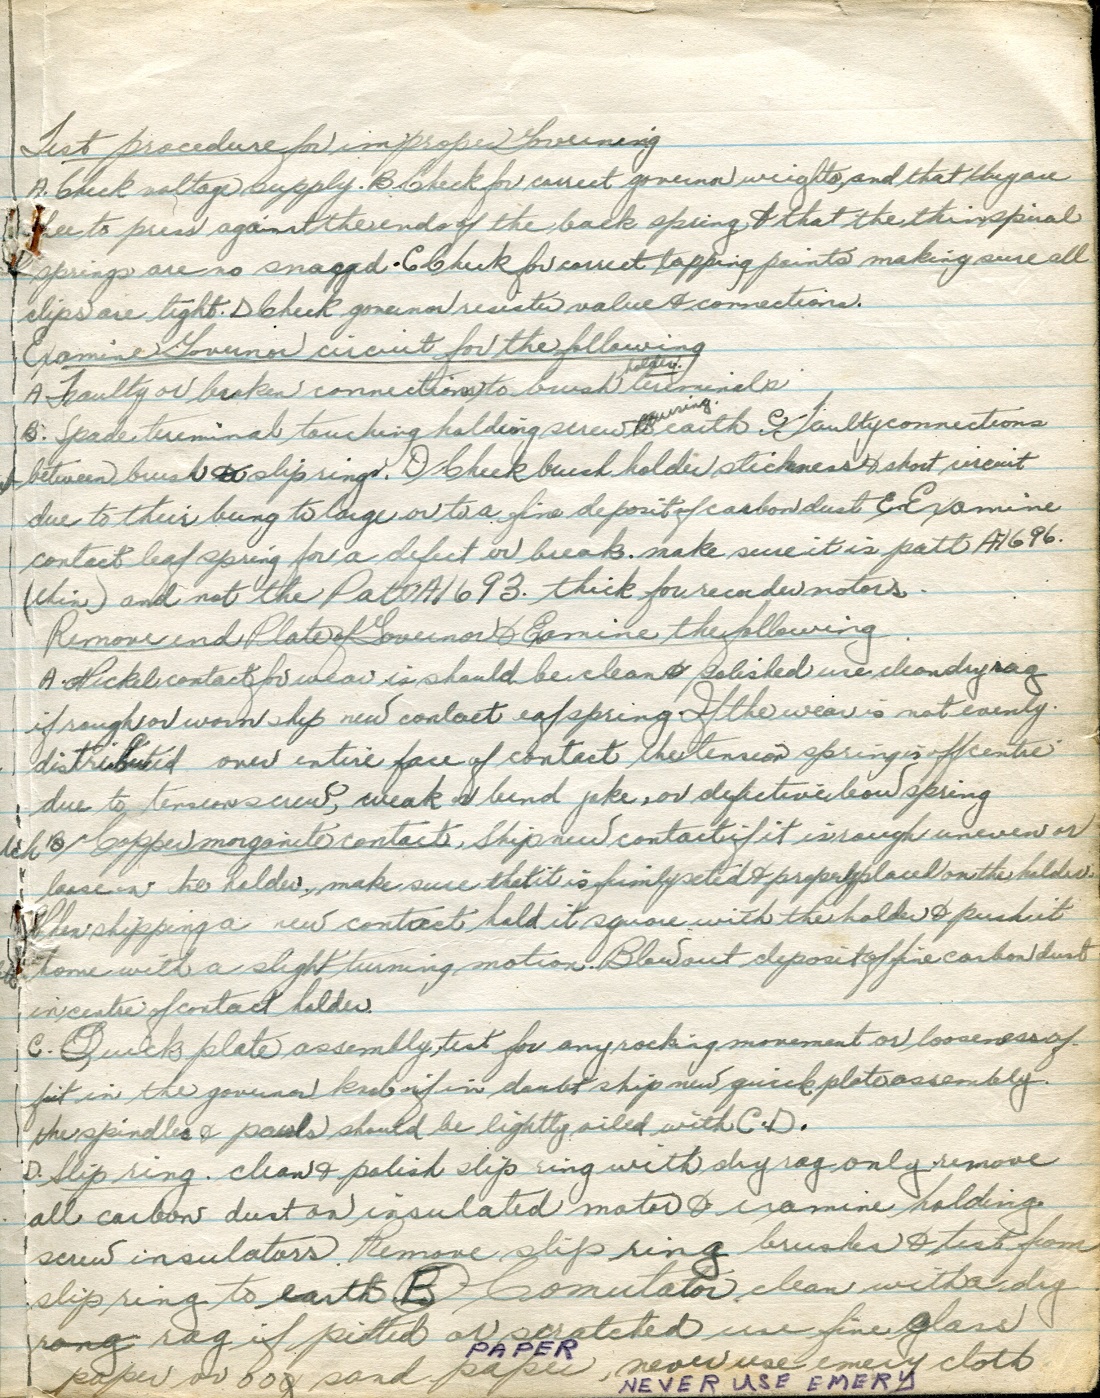 Test procedure for improper Governing
A. Check voltage supply. B Check for correct governor weights, and that they are
free to press against the ends of the back spring & that the thin spiral
springs are no snagged. C Check for correct tapping points making sure all
clips are tight. D Check governor resister value & connections.
Examine Governor circuit for the following
A Faulty or broken connections to brush holder terminals
B. Spade terminal touching holding screw causing earth. C Faulty connections
between brush & slip rings. D Check brush holder stickness & short circuit
due to their being to large or to a fine deposit of carbon dust E Examine
contact leaf spring for a defect or break. make sure it is patt A1696.
(thin) and not the Patt A1693. thick for recorder motors.
Remove end Plate of Governor & Examine the following
A. Nickel contact for wear is should be clean & polished use clean dry rag
if rough or worn ship new contact eaf spring. If the wear is not evenly
distributed over entire face of contact the tension spring is off centre
due to tension screw, weak or bend yoke, or defective bow spring
B Copper morganite contact. Ship new contact if it is rough uneven or
loose in the holder, make sure that it is firmly seted & properly placed on the holder.
When shipping a new contact hold it square with the holder & push it
home with a slight turning motion. Blow out deposit of fine carbon dust
in centre of contact holder.
C. Quick plate assembly, test for any rocking movement or looseness of
fit in the governor knob if in doubt ship new quick plate assembly.
the spindles & pawls should be lightly oiled with C.D.
D. Slip ring. clean & polish slip ring with dry rag only remove
all carbon dust on insulated motor & examine holding
screw insulators. Remove slip ring brushes & test from
slip ring to earth. B Comutator clean with a dry
rang rag if pitted or scratched use fine glass
PAPER
paper or 00g sand paper, never use emery cloth
NEVER USE EMERY